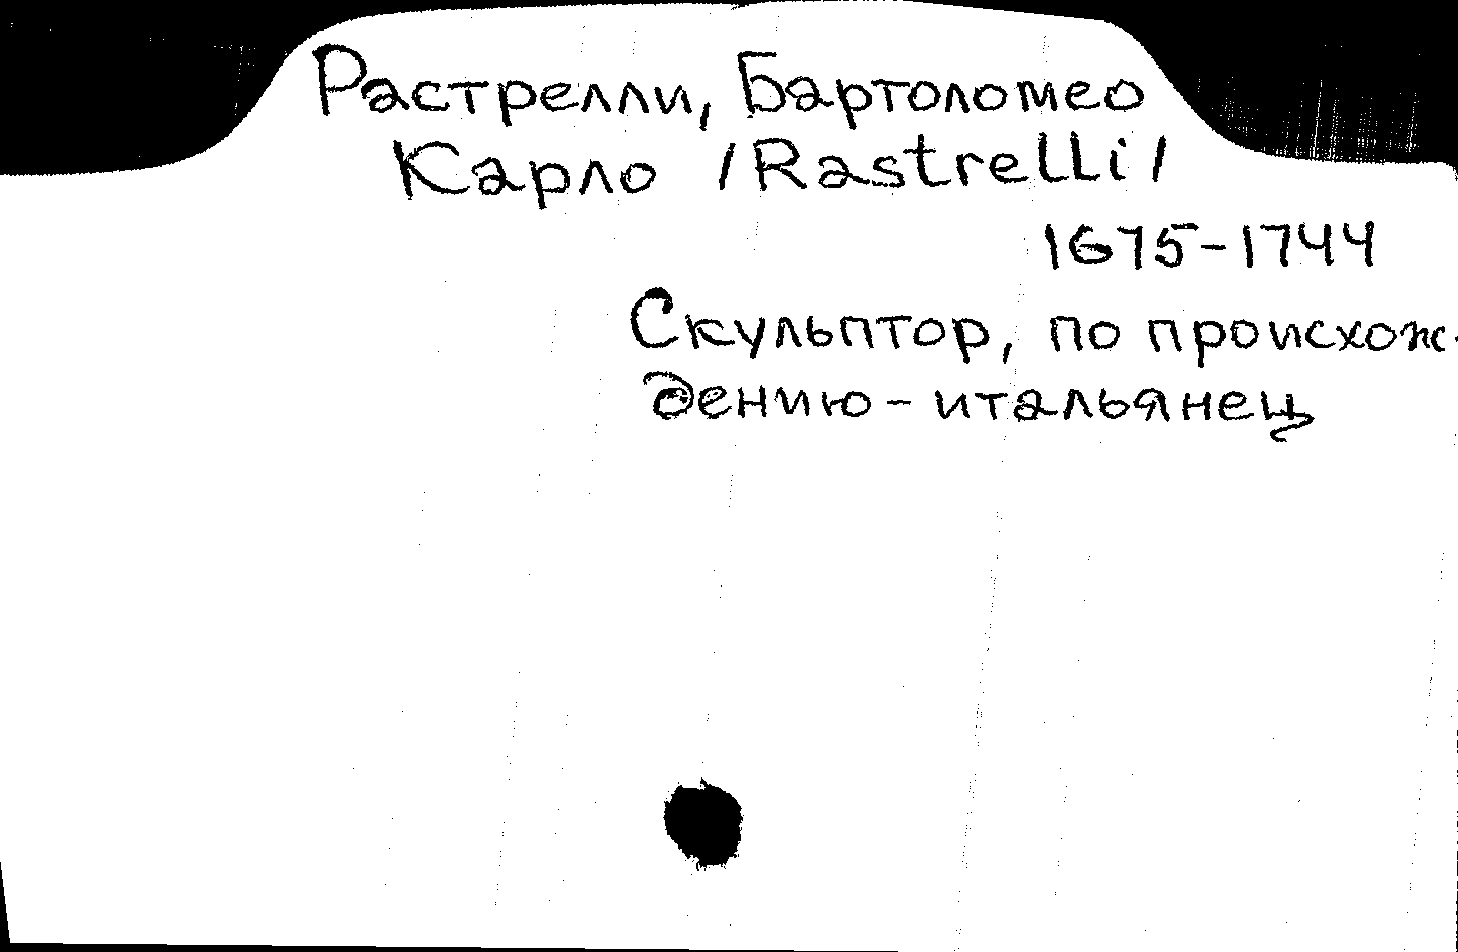 Растрелли, Бартоломео
Карло /Rastrelli/
1675-1744
Скульптор, по происхож-
дению - итальянец